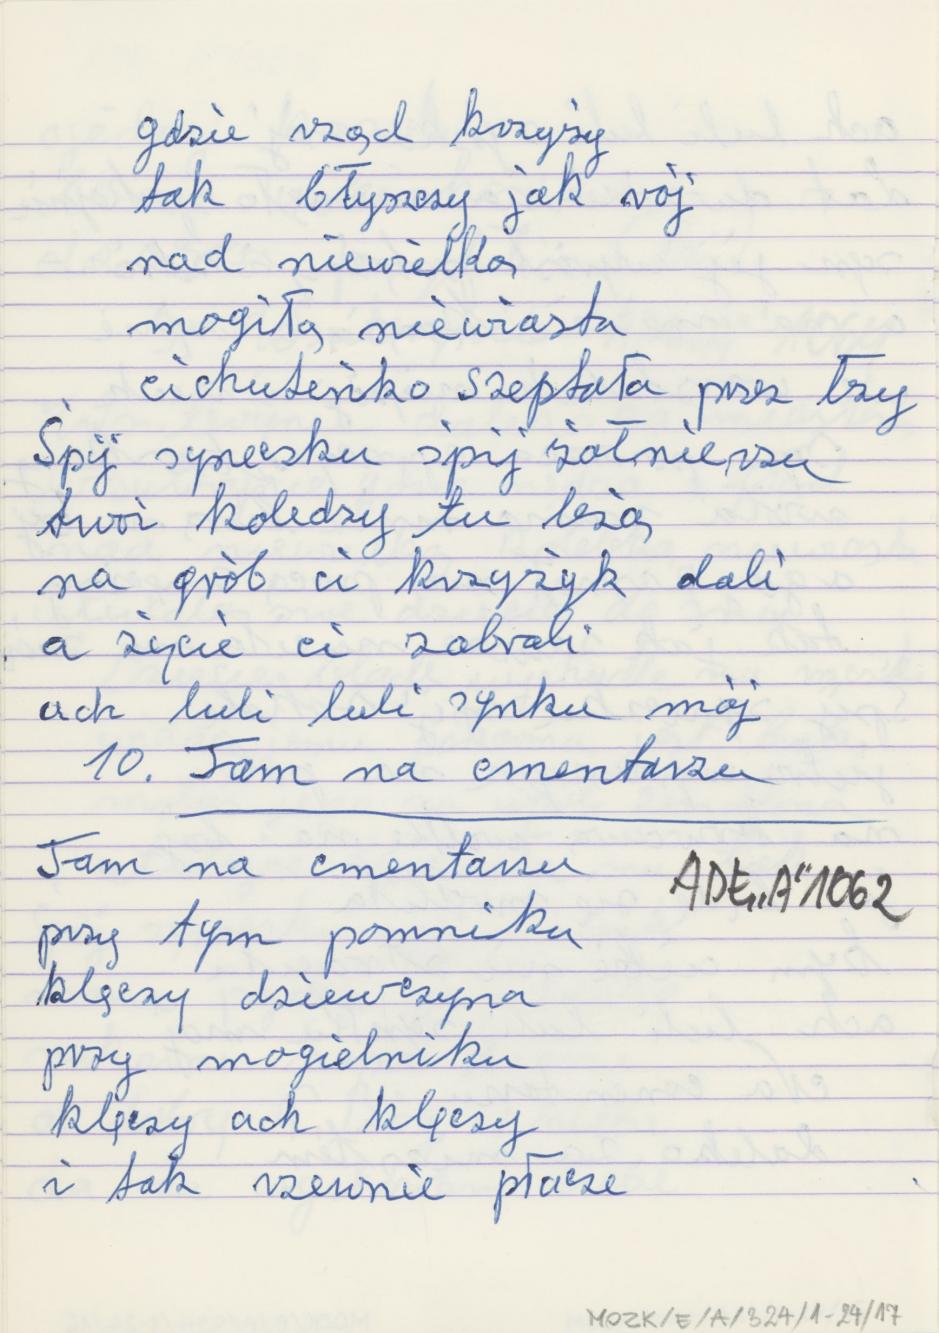 gdzie rząd krzyży
tak błyszczy jak rój
nad niewielką
mogiłą niewiasta
cichuteńko szeptała przez łzy
Śpij syneczku śpij żołnierzu
twoi koledzy tu leżą
na grób ci krzyżyk dali
a życie ci zabrali
ach luli luli synku mój
10. Tam na cmentarzu
Tam na cmentarzu
ADŁ „A" 1062
przy tym pomniku
klęczy dziewczyna
przy mogielniku
klęczy ach klęczy
i tak rzewnie płacze
MOZK/E/A/324/1-24/17